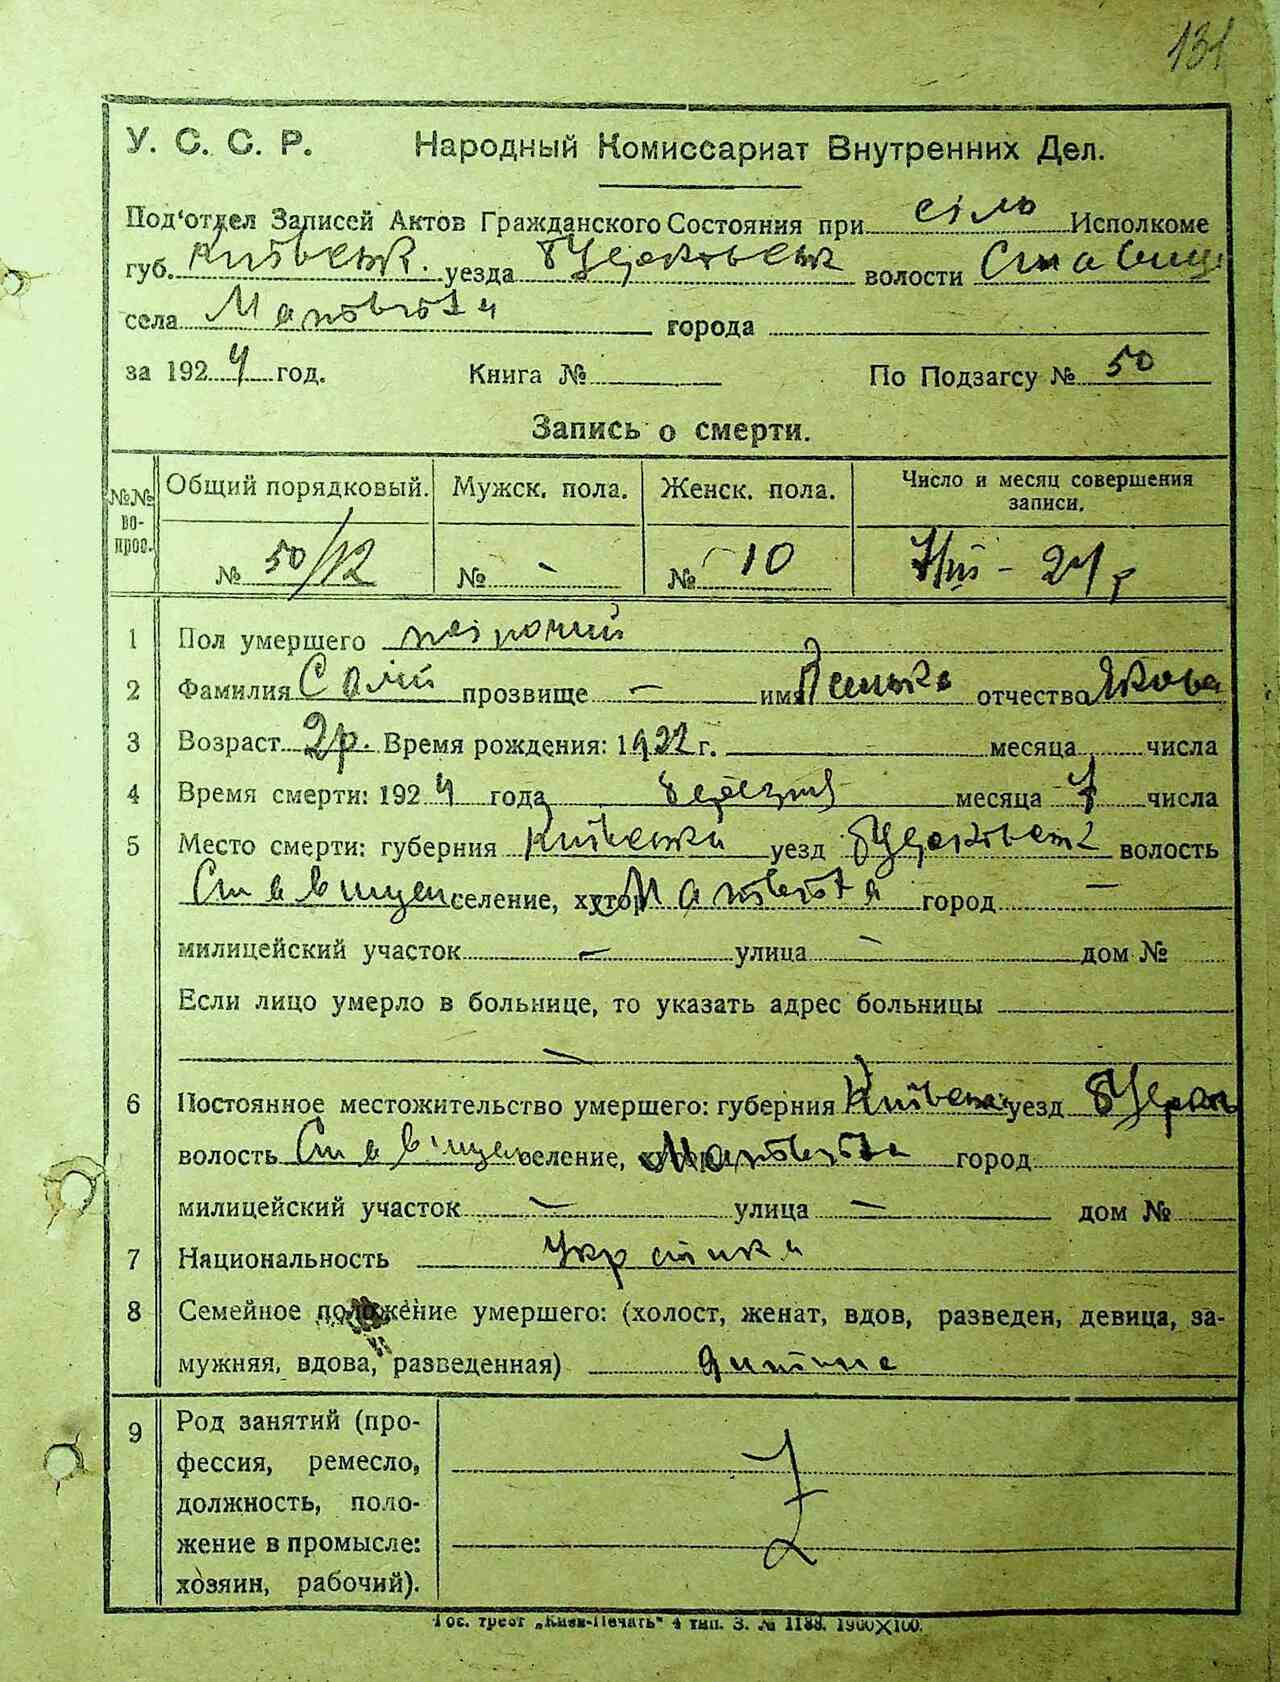 131
У. С. С. Р. Народный Комиссариат Внутренних Дел.
Под‘отдел Записей Актов Гражданского Состояния при сіль Исполкоме
губ. Київськ. уезда Білоцерковськ волости Ставищ
села година города
за 1924 год. Книга № По Подзагсу № 50
Запись о смерти.
№№ во-прос. Общий порядковый. Мужск. пола. Женск. пола. Число и месяц совершения записи.
№ 50/12 № - № 10 7/III - 24 р
1 Пол умершего жіночий
2 Фамилия прозвище — имя отчество Якова
3 Возраст 2 р. Время рождения: 1922 г. месяца числа
4 Время смерти: 1924 года березня месяца 7 числа
5 Место смерти: губерния Київська уезд волость
Ставищен селение, хутор город —
милицейский участок — улица — дом №
Если лицо умерло в больнице, то указать адрес больницы
—
6 Постоянное местожительство умершего: губерния Київська уезд
волость Ставищен селение, город
милицейский участок — улица — дом №
7 Национальность Українка
8 Семейное положение умершего: (холост, женат, вдов, разведен, девица, за-
мужняя, вдова, разведенная) дитина
9 Род занятий (про-
фессия, ремесло,
должность, поло-
жение в промысле:
хозяин, рабочий).
Гос. трест „Киев-Печать“ 4 тип. З. № 1188. 1900×100.